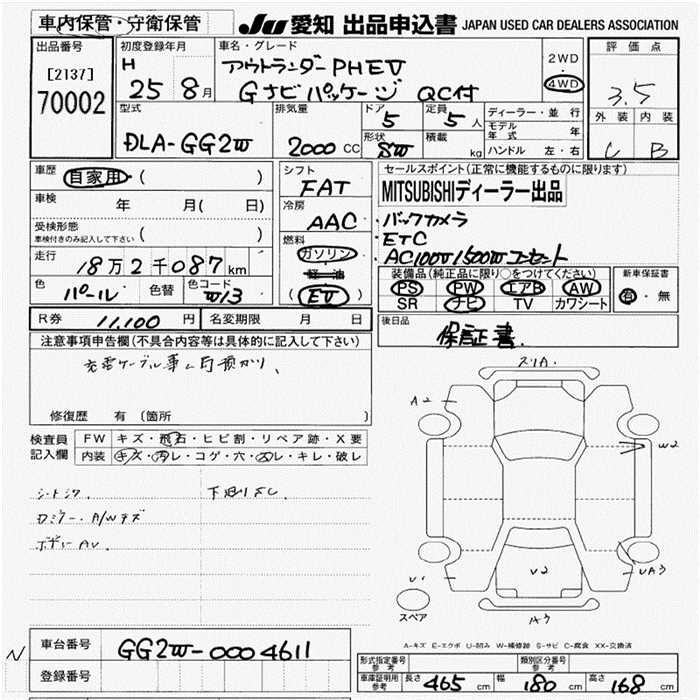 車内保管・守衛保管
JU 愛知 出品申込書 JAPAN USED CAR DEALERS ASSOCIATION
出品番号
[2137]
70002
初度登録年月
H 25 8月
車名・グレード
アウトランダーPHEV
Gナビパッケージ QC付
2WD
4WD
評価点
3.5
外装 内装
C B
型式
DLA-GG2W
排気量
2000 CC
ドア
5
定員
5人
形状
SW
積載
kg
ディーラー・並行
モデル年式 年
ハンドル 左・右
車歴 自家用 ( )
車検 年 月( 日)
受検形態
車検付きのみ記入して下さい ( )
走行 18万2千087km
色 パール 色替 色コード W13
シフト
FAT
冷房
AAC
燃料
ガソリン
軽油
(EV)
セールスポイント(正常に機能するものに限ります)
MITSUBISHIディーラー出品
・バックカメラ
・ETC
・AC100V1500Wコンセント
装備品(純正品に限り○をつけてください)
PS PW エアB AW
SR ナビ TV カワシート
新車保証書
有・無
R券 11,100円 名変期限 月 日
後日品
保証書.
注意事項申告欄(不具合内容等は具体的に記入して下さい)
修復歴 有 (箇所 )
検査員記入欄
FW キズ・飛石・ヒビ割・リペア跡・X要
内装 キズ・汚レ・コゲ・穴・スレ・キレ・破レ
スリA.
A2
W2
U1
V2
UA3
A3
スペア
A-キズ E-エクボ U-凹み W-補修跡 S-サビ C-腐食 XX-交換済
N
車台番号 GG2W-0004611
登録番号
形式指定番号 参考
類別区分番号 参考
車庫証明用 参考 長さ 465 cm 幅 180 cm 高さ 168 cm